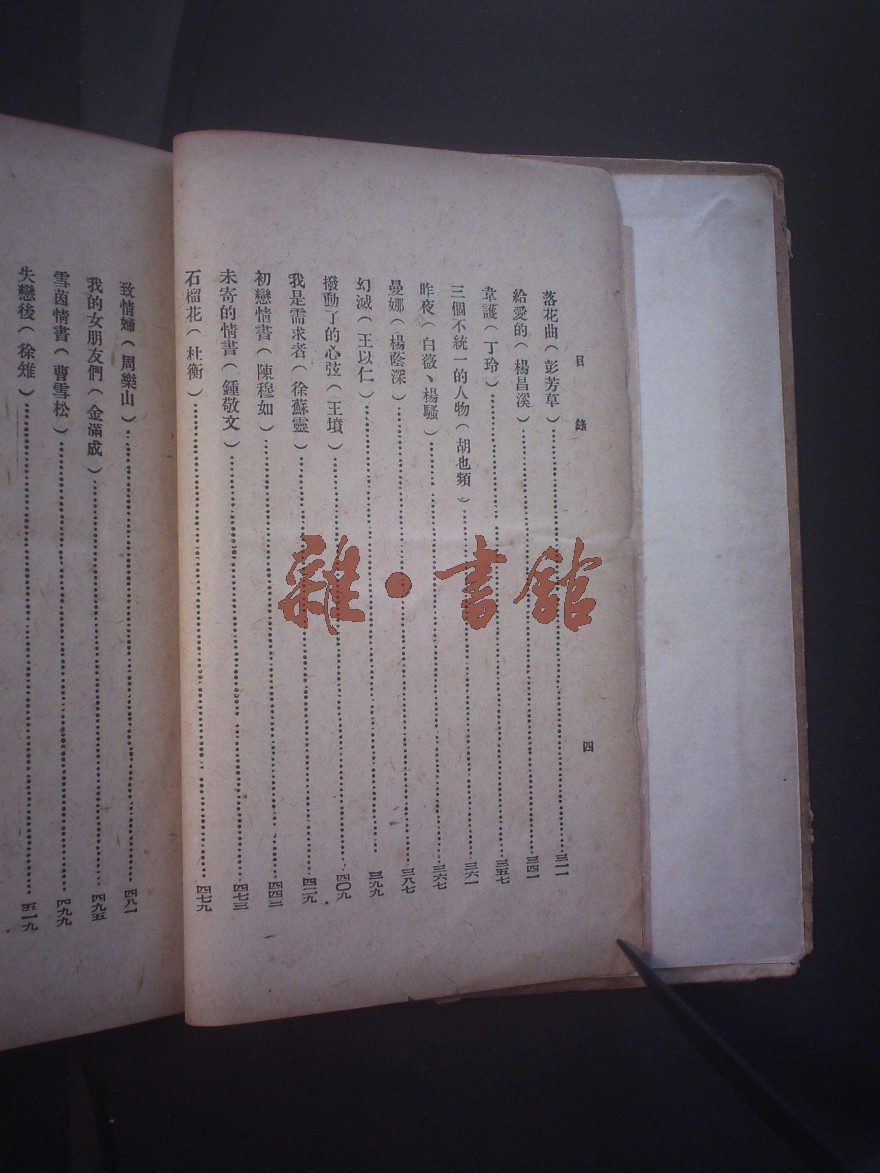 目錄
四
落花曲(彭芳草)……三一一
給愛的(楊昌溪)……三四一
韋護(丁玲)……三五七
三個不統一的人物(胡也頻)……三六一
昨夜(白薇、楊騷)……三六七
曼娜(楊蔭深)……三八七
幻滅(王以仁)……三九九
撥動了的心弦(王墳)……四〇九
我是需求者(徐蘇靈)……四二九
初戀情書(陳穆如)……四四三
未寄的情書(鍾敬文)……四七三
石榴花(杜衡)……四七九
致情婦(周樂山)……四八一
我的女朋友們(金滿成)……四九五
雪茵情書(曹雪松)……四九九
失戀後(徐雉)……五一九
雜·書館